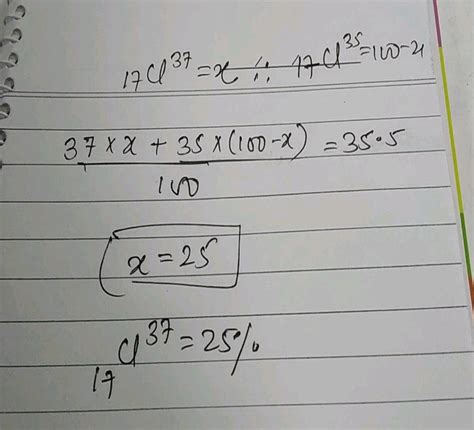 ₁₇Cl³⁷ = x ∴ ₁₇Cl³⁵ = 100-x
37 × x + 35 × (100-x) = 35.5
100
x = 25
₁₇Cl³⁷ = 25%